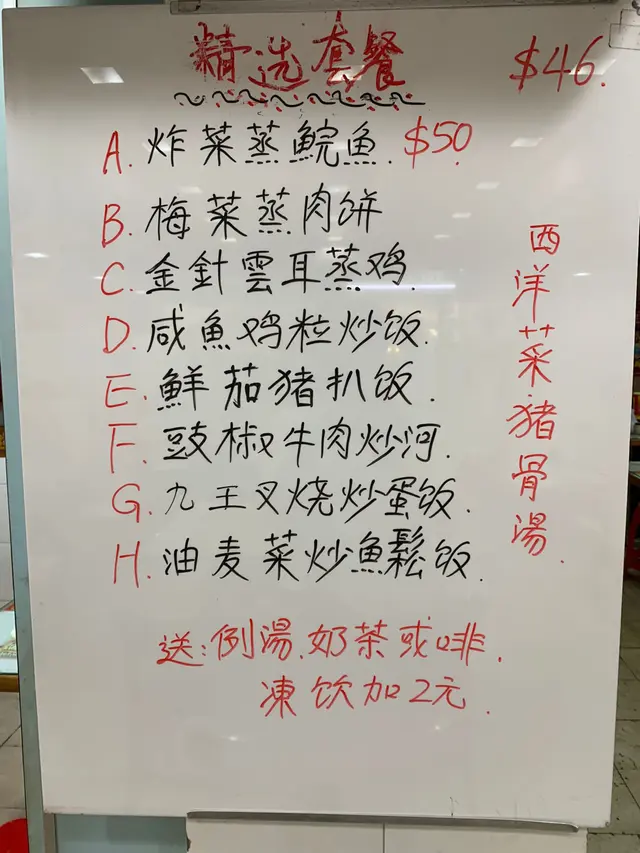 精选套餐 $46.
A. 炸菜蒸鯇魚. $50
B. 梅菜蒸肉饼
C. 金針雲耳蒸鸡.
D. 咸魚鸡粒炒饭.
E. 鮮茄猪扒饭.
F. 豉椒牛肉炒河.
G. 九王叉烧炒蛋饭.
H. 油麦菜炒魚鬆饭.
西洋菜猪骨湯.
送:例湯.奶茶或啡.
凍饮加2元.